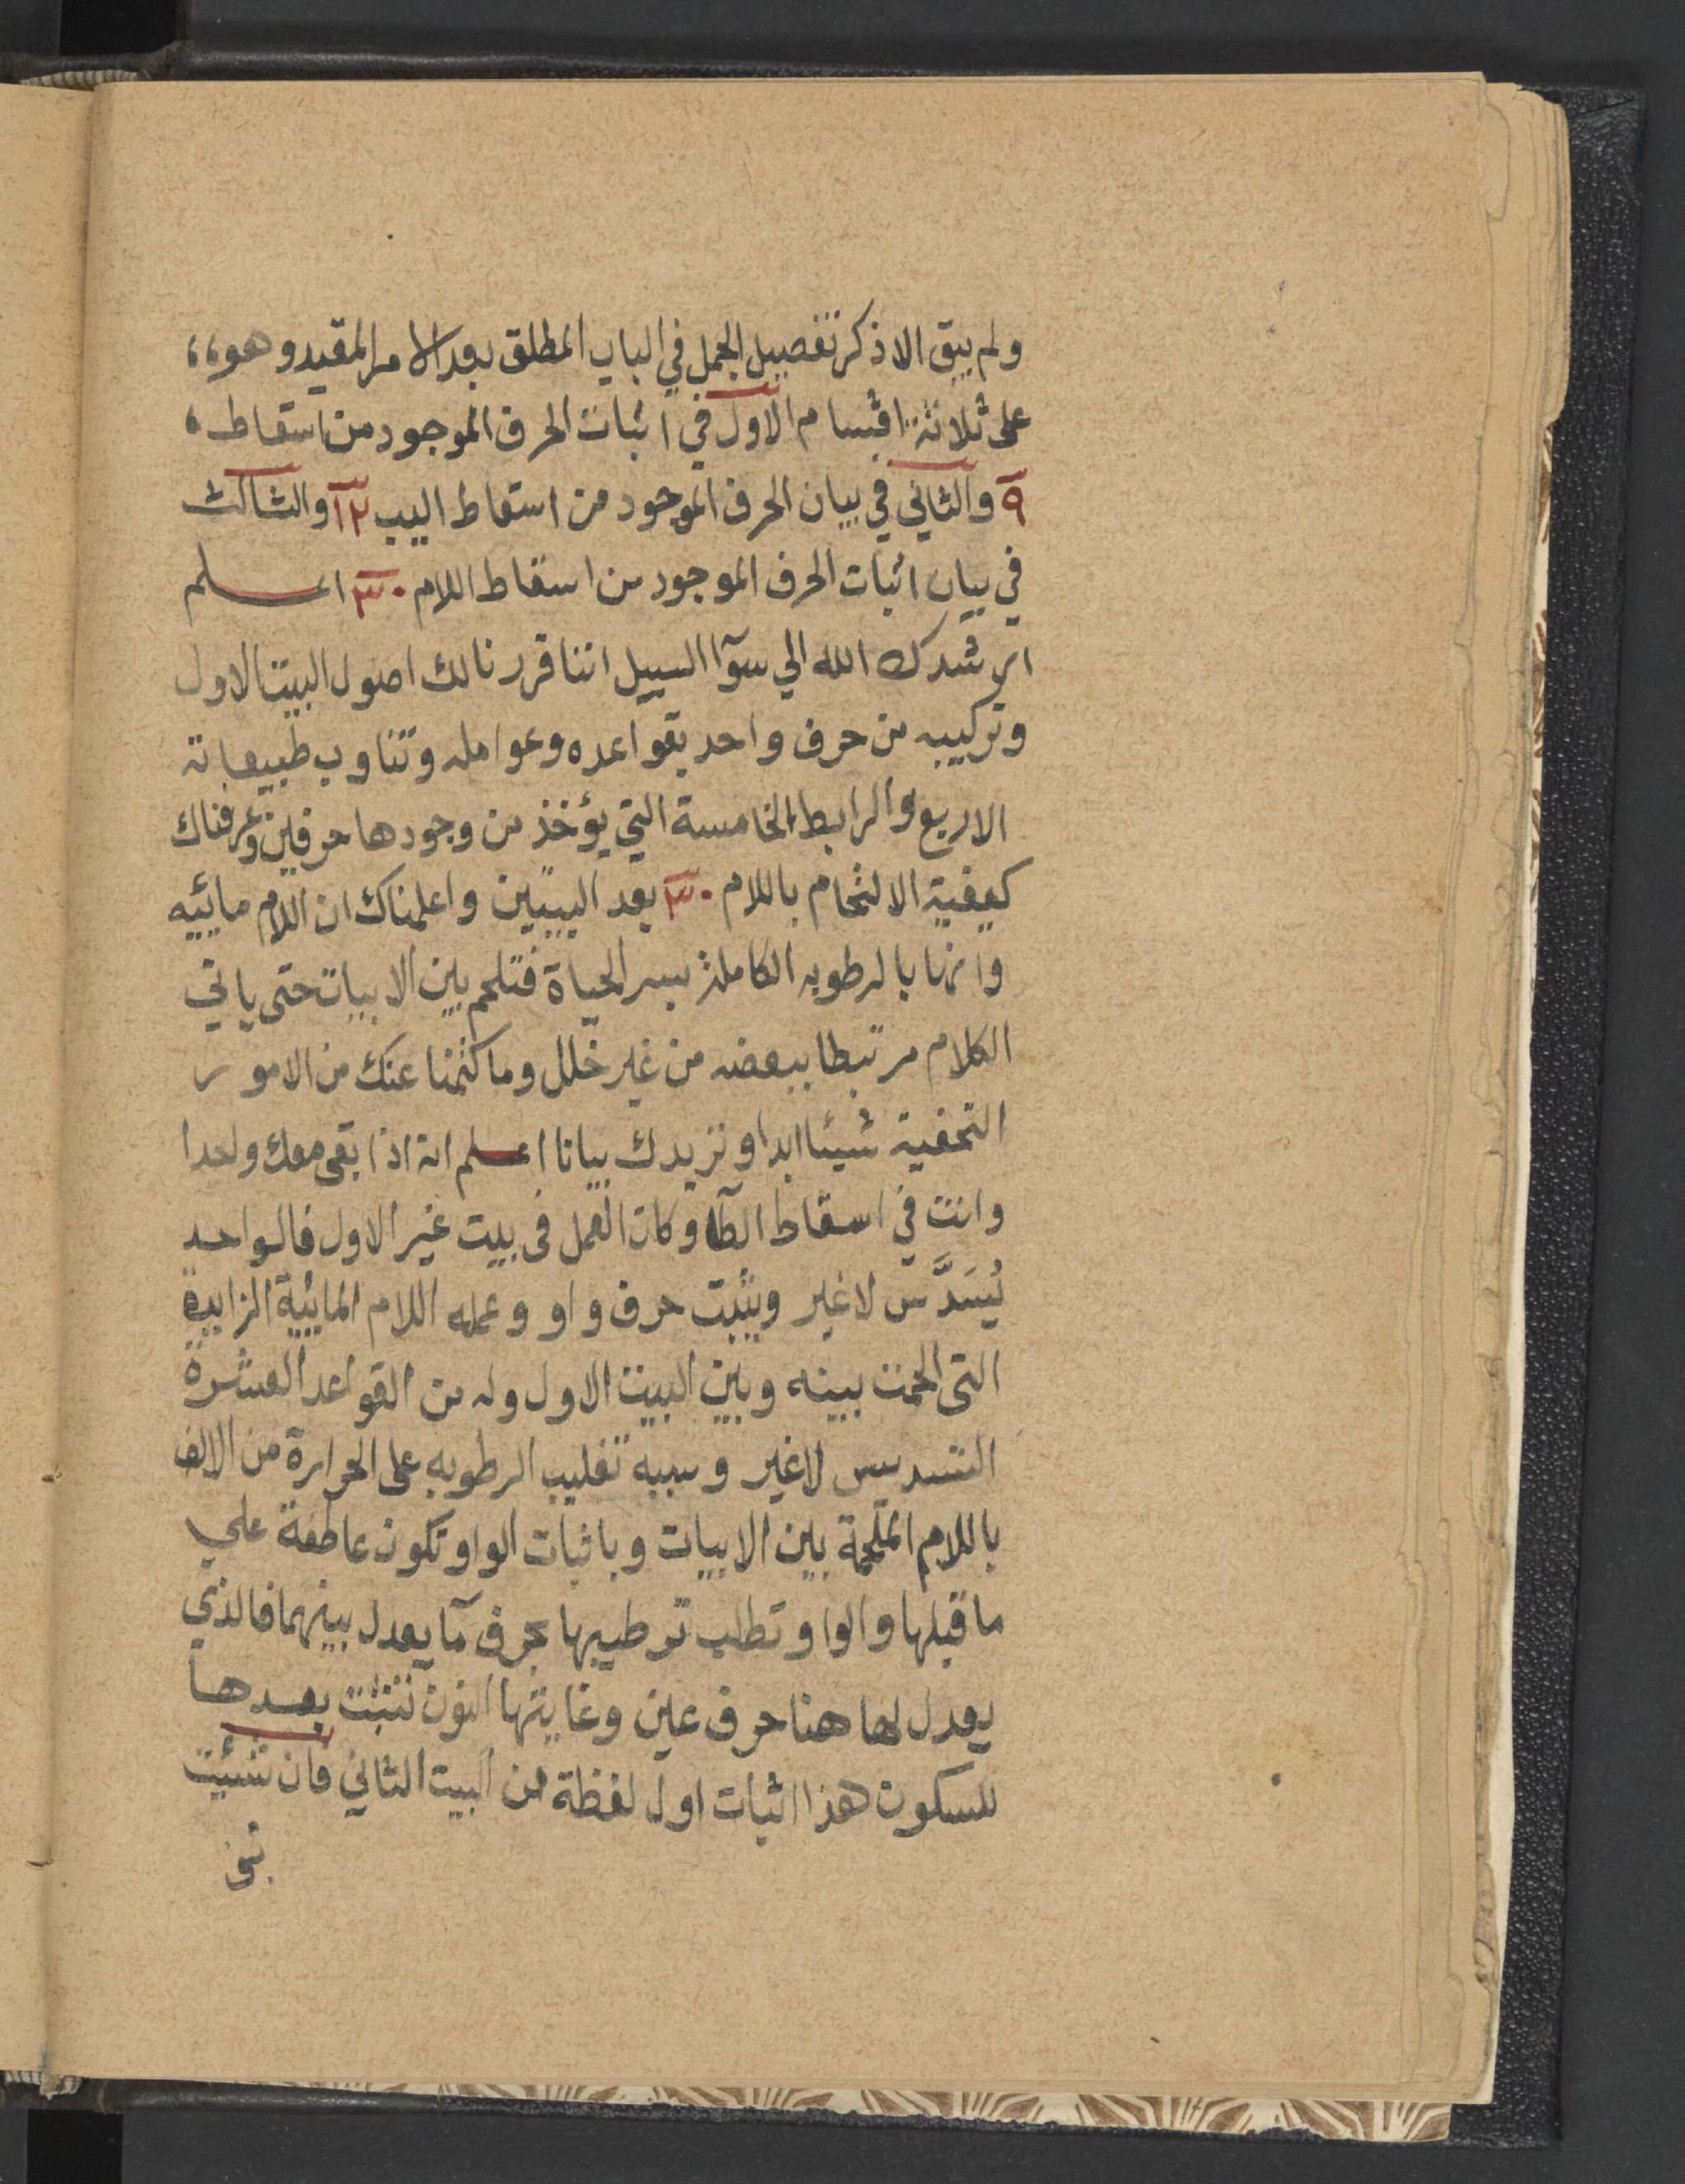 ولم يبق الا ذكر تفصيل الجمل في الباب المطلق بعد الامر المقيد وهو ،،
على ثلاثة اقسام الاول في اثبات الحرف الموجود من اسقاط ،
٩ والثاني في بيان الحرف الموجود من اسقاط اليب ١٢ والثالث
في بيان اثبات الحرف الموجود من اسقاط اللام ٣٠ اعلم
ارشدك الله الي سوآ السبيل اننا قررنا لك اصول البيت الاول
وتركيبه من حرف واحد بقواعده وعوامله وتناوب طبيعاته
الاربع والرابط الخامسة التي يؤخذ من وجودها حرفين وعرفناك
كيفية الالتحام باللام ٣٠ بعد البيتين واعلمناك ان اللام مائيه
وانها بالرطوبه الكاملة بسر الحياة فتلحم بين الابيات حتى ياتي
الكلام مرتبطا ببعضه من غير خلل وما كتمنا عنك من الامور
التحفية شيئا ابدا ونزيدك بيانا اعلم انه اذا بقى معك واحدا
وانت في اسقاط الطآ وكان العمل فى بيت غير الاول فالواحد
يُسَدَّس لاغير ويثبت حرف واو وعمله اللام المائيية الزايدة
التى الحمت بينه وبين البيت الاول وله من القواعد العشرة
التسديس لاغير وسببه تغليب الرطوبه على الحرارة من الالف
باللام الملحمة بين الابيات وباثبات الواو تكون عاطفة علي
ما قبلها والواو تطلب ترطيبها بحرف مآ يعدل بينهما فالذي
يعدل لها هنا حرف عين وغايتها النون تثبت بعدها
للسكون هذا اثبات اول لفظة من البيت الثاني فان شئيت